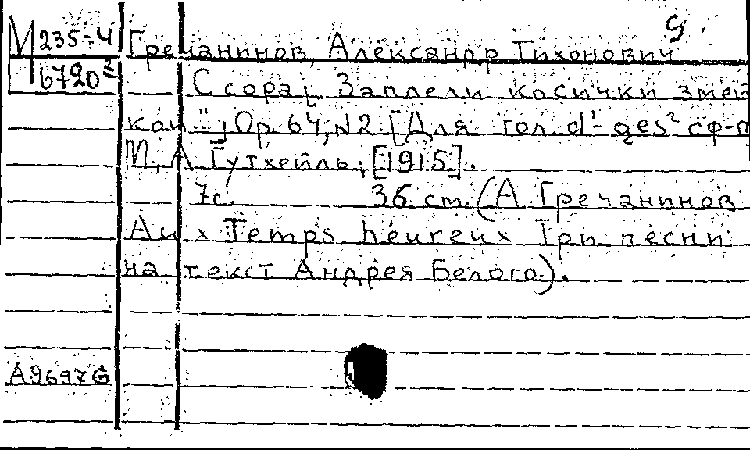 М 235-4
9
Гречанинов, Александр Тихонович
6720²
Ссора; Заплели косички змей
кой"; Ор. 64, №2. [Для гол. d¹-ges² с ф-п
М., А. Гутхейль, [1915].
7с. 36 см. (А. Гречанинов
Aux Temps heureux Три песни
на текст Андрея Белого).
А9697G